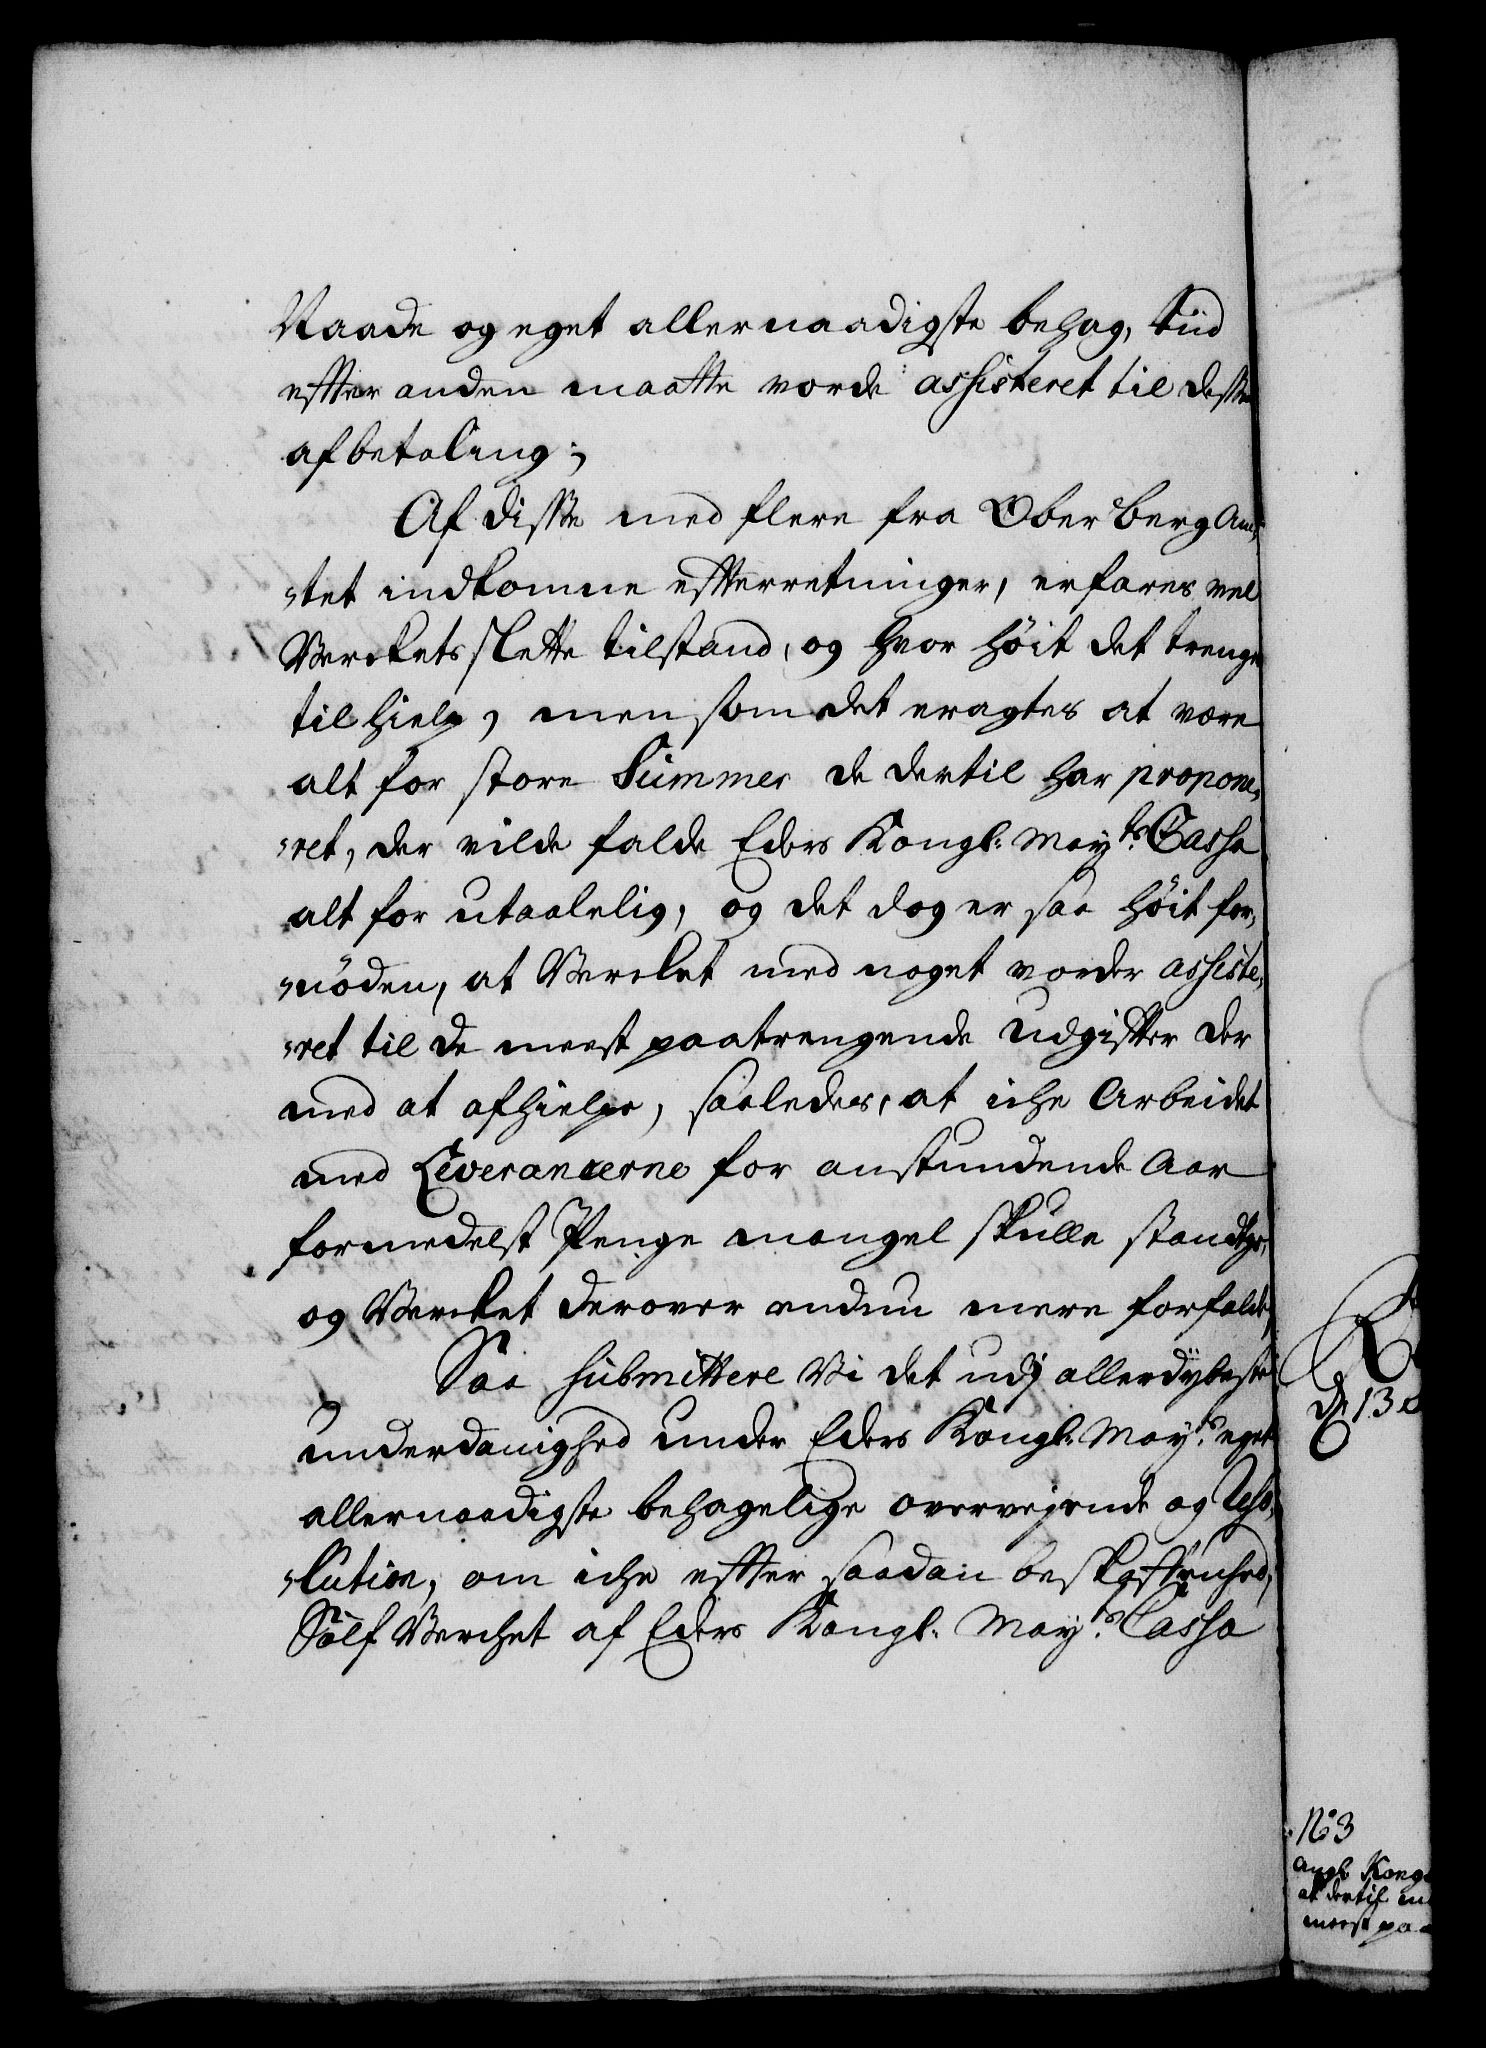 Naade og eget allernaadigste behag, tiid
effter anden maatte vorde assisteret til dessen
afbetaling;
Af disse med flere fra Ober Berg Am„
„tet indkomne effterretninger, erfares vel
Verckets slette tilstand, og hvor höit det trenger
til hielp, men som det eragtes at være
alt for store Summer de dertil har propone„
„ret, der vilde falde Eders Kongl: May.ts Cassa
alt for utaalelig, og det dog er saa höit for„
„nöden, at Vercket med noget vorder assiste„
„ret til de meest paatrengende Udgiffter der
med at afhielpe, saaledes, at iche Arbeidet
med Leverancerne for anstundende Aar
formedelst Penge mangel skulle standse,
og Vercket derover endnu mere forfalde,
Saa submittere Vi det udj allerdybeste
underdanighed under Eders Kongl: May.ts eget
allernaadigste behagelige overvejende og Reso„
„lution, om iche effter saadan beskaffenhed,
Sölf Verchet af Eders Kongl. May.ts Cassa
R
d. 13
No 3
Angl. Kong
at dertil
meest pa